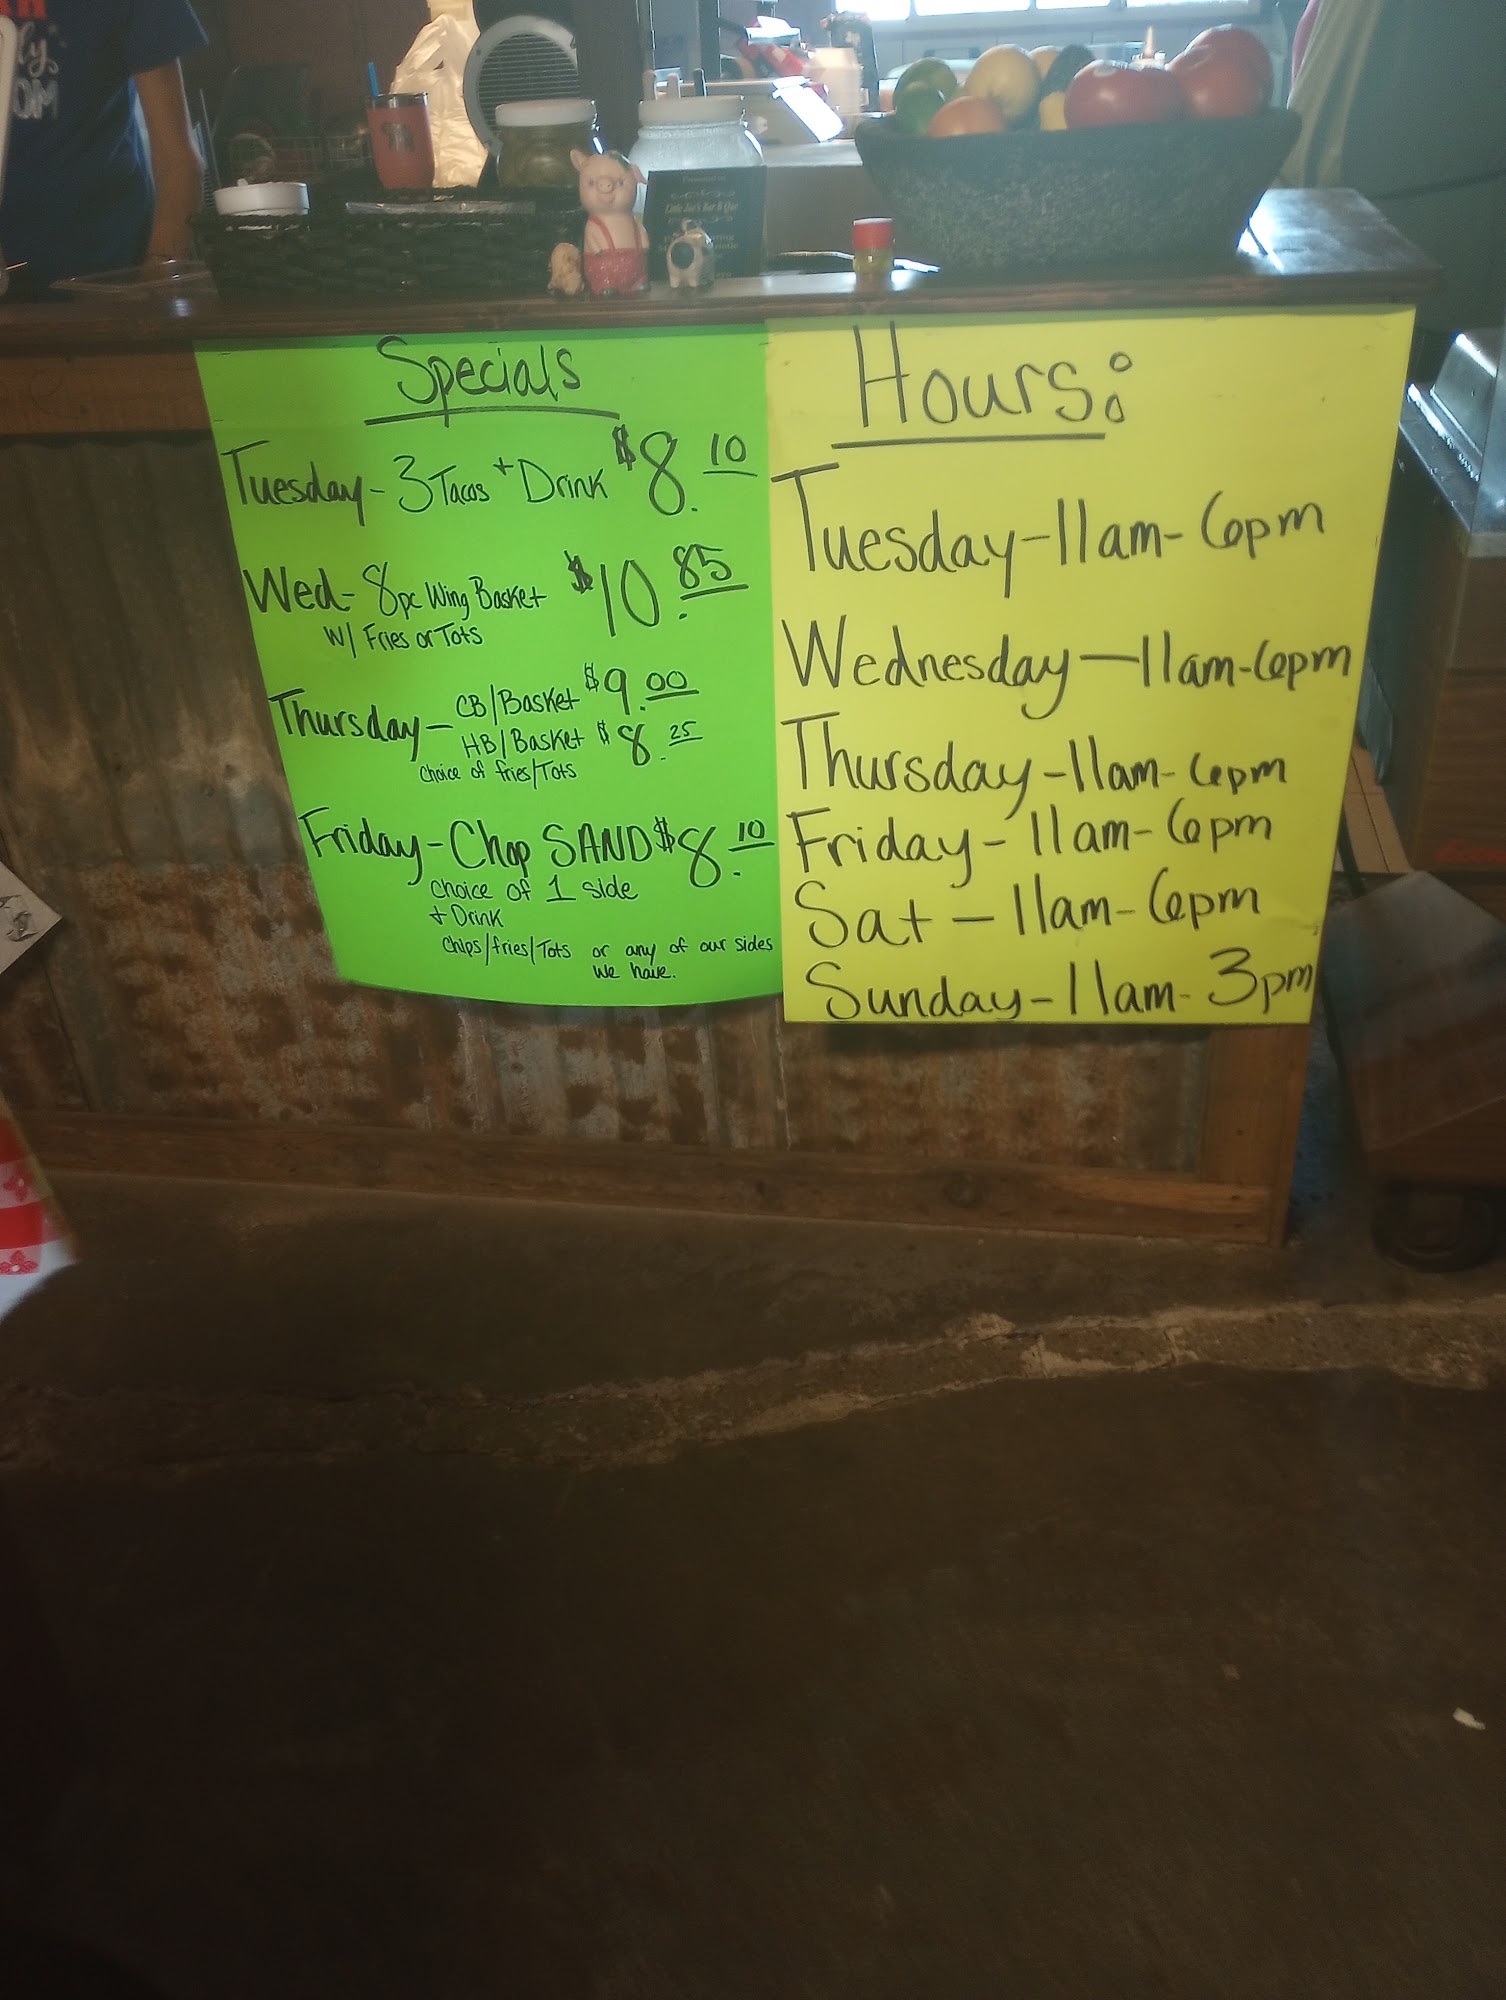 Little Joe's Bar B Que
Specials
Tuesday - 3 Tacos + Drink $8.10
Wed - 8pc Wing Basket $10.85
W/ Fries or Tots
Thursday - CB/Basket $9.00
HB/Basket $8.25
Choice of fries/Tots
Friday - Chop SAND $8.10
Choice of 1 side
+ Drink
Chips/fries/Tots or any of our sides
we have.
Hours:
Tuesday - 11am - 6pm
Wednesday - 11am - 6pm
Thursday - 11am - 6pm
Friday - 11am - 6pm
Sat - 11am - 6pm
Sunday - 11am - 3pm